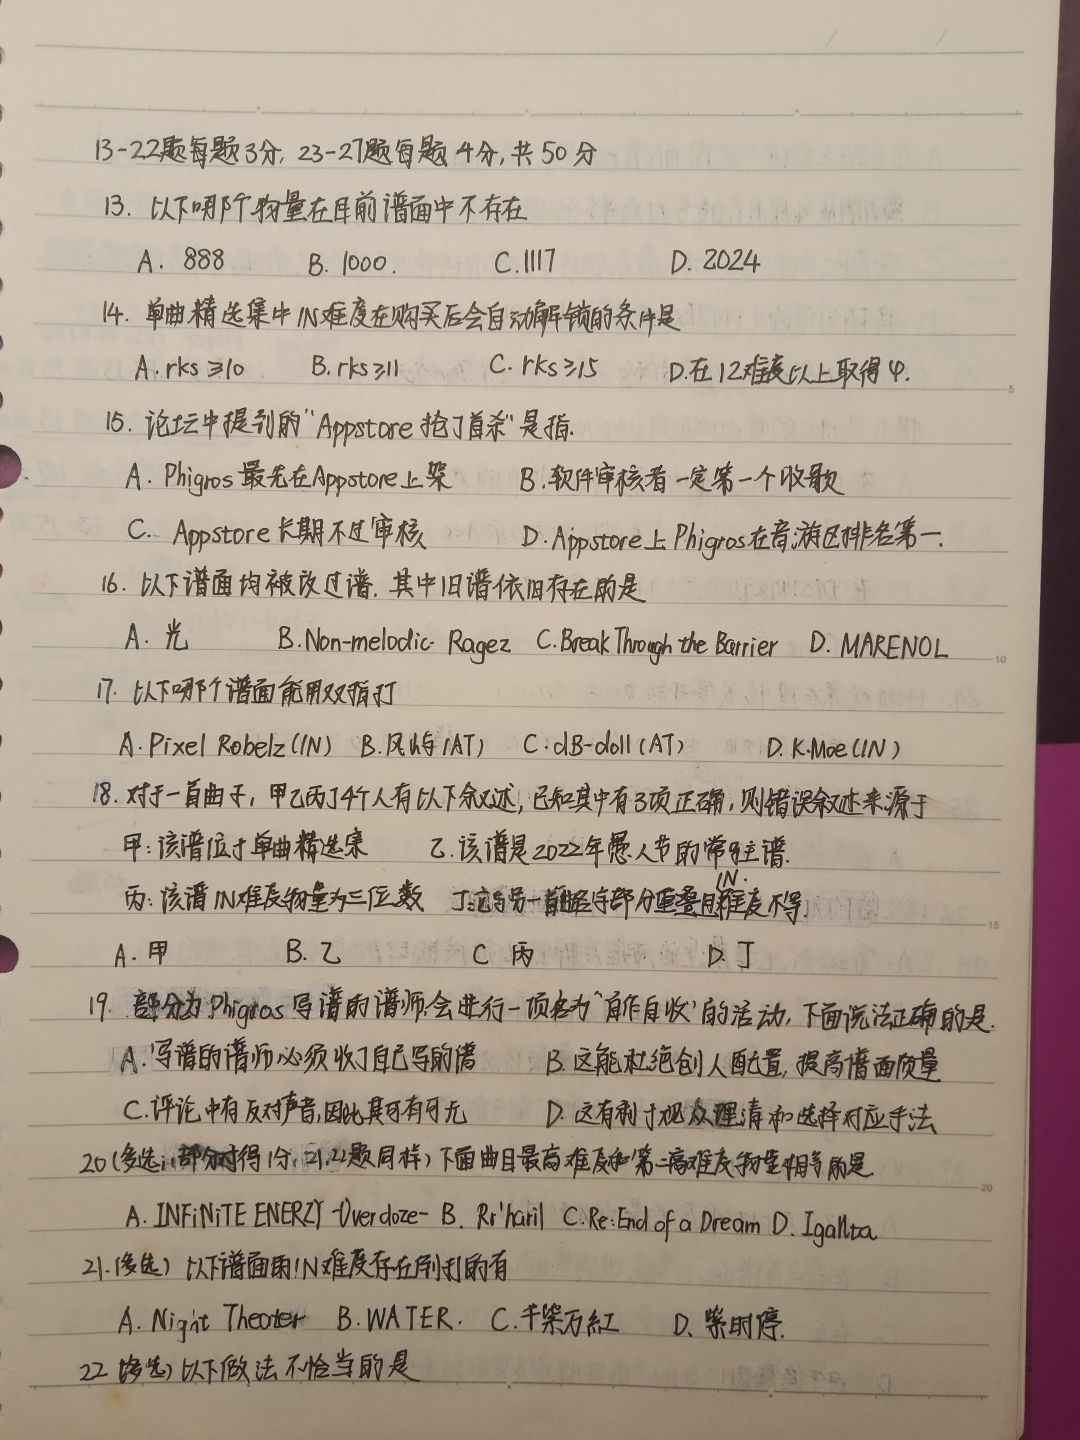 13-22题每题3分, 23-27题每题4分,共50分
13. 以下哪个物量在目前谱面中不存在
A. 888 B. 1000. C.1117 D. 2024
14. 单曲精选集中IN难度在购买后会自动解锁的条件是
A.rks≥10 B.rks≥11 C. rks≥15 D.在12难度以上取得φ.
15. 论坛中提到的"Appstore抢了首杀"是指.
A. Phigros最先在Appstore上架 B.软件审核者一定第一个收歌
C. Appstore长期不过审核 D.Appstore上Phigros在音游区排名第一.
16. 以下谱面均被改过谱, 其中旧谱依旧存在的是
A. 光 B.Non-melodic Ragez C.Break Through the Barrier D. MARENOL
17. 以下哪个谱面能用双指打
A.Pixel Rebelz(IN) B.风屿(AT) C.dB-doll(AT) D.K.Moe(IN)
18.对于一首曲子, 甲乙丙丁4个人有以下叙述,已知其中有3项正确,则错误叙述来源于
甲:该谱位于单曲精选集 乙.该谱是2022年愚人节的常驻谱.
丙:该谱IN难度物量为三位数 丁:它与另一首曲名字部分重叠且IN难度不等.
A.甲 B.乙 C 丙 D.丁
19. 部分为Phigros写谱的谱师会进行一项名为"自作自收"的活动,下面说法正确的是.
A.写谱的谱师必须收了自己写的谱 B.这能杜绝创人配置,提高谱面质量
C.评论中有反对声音,因此其可有可无 D.这有利于观众理清和选择对应手法
20(多选,部分对得1分,21,22题同样)下面曲目最高难度和第二高难度物量相等的是
A. INFiNiTE ENERZY -Overdoze- B. Rr'haril C.Re:End of a Dream D. Igallta
21.(多选) 以下谱面IN难度存在的有
A. Night Theater B.WATER. C.千紫万紅 D. 柴时停.
22(多选)以下做法不恰当的是